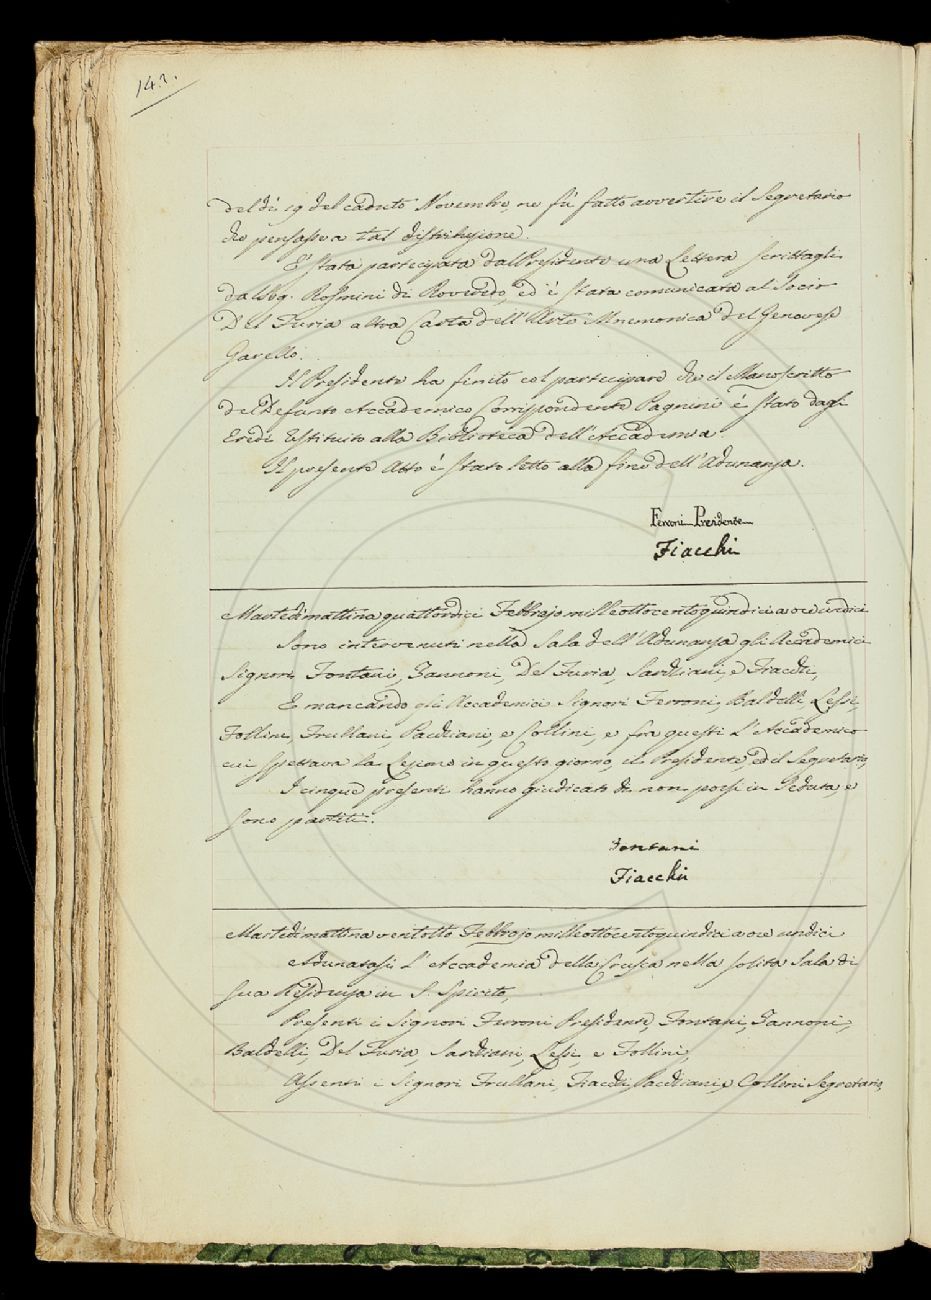 142.
del dì 19 del caduto Novembre, ne fù fatto avvertire il Segretario
che pensasse a tal distribuzione.
È stata partecipata dal Presidente una Lettera scrittagli
dal Sig. Rosmini di Roveredo, ed è stata comunicata al Socio
Del Furia altra Carta dell'Arte Mnemonica del Genovese
Garello.
Il Presidente ha finito col partecipare che il Manoscritto
del Defunto Accademico Corrispondente Pagnini è stato dagli
Eredi restituito alla Biblioteca dell'Accademia.
Il presente Atto è stato letto alla fine dell'Adunanza.
Ferroni Presidente
Fiacchi
Martedì mattina quattordici Febbrajo mille ottocento quindici a ore undici
Sono intervenuti nella Sala dell'Adunanza gli Accademici
Signori Fontani, Zannoni, Del Furia, Sarchiani, e Fiacchi,
E mancando gli Accademici Signori Ferroni, Baldelli, Lessi,
Follini, Frullani, Pacchiani, e Collini, e fra questi l'Accademico
cui spettava la Lezione in questo giorno, il Presidente, ed il Segretario,
I cinque presenti hanno giudicato di non porsi in Seduta, e
sono partiti.
Fontani
Fiacchi
Martedì mattina ventotto Febbrajo mille ottocento quindici a ore undici
Adunatasi l'Accademia della Crusca nella solita Sala di
sua Residenza in S. Spirito,
Presenti i Signori Ferroni Presidente, Fontani, Zannoni,
Baldelli, Del Furia, Sarchiani, Lessi, e Follini,
Assenti i Signori Frullani, Fiacchi, Pacchiani, e Collini Segretario,